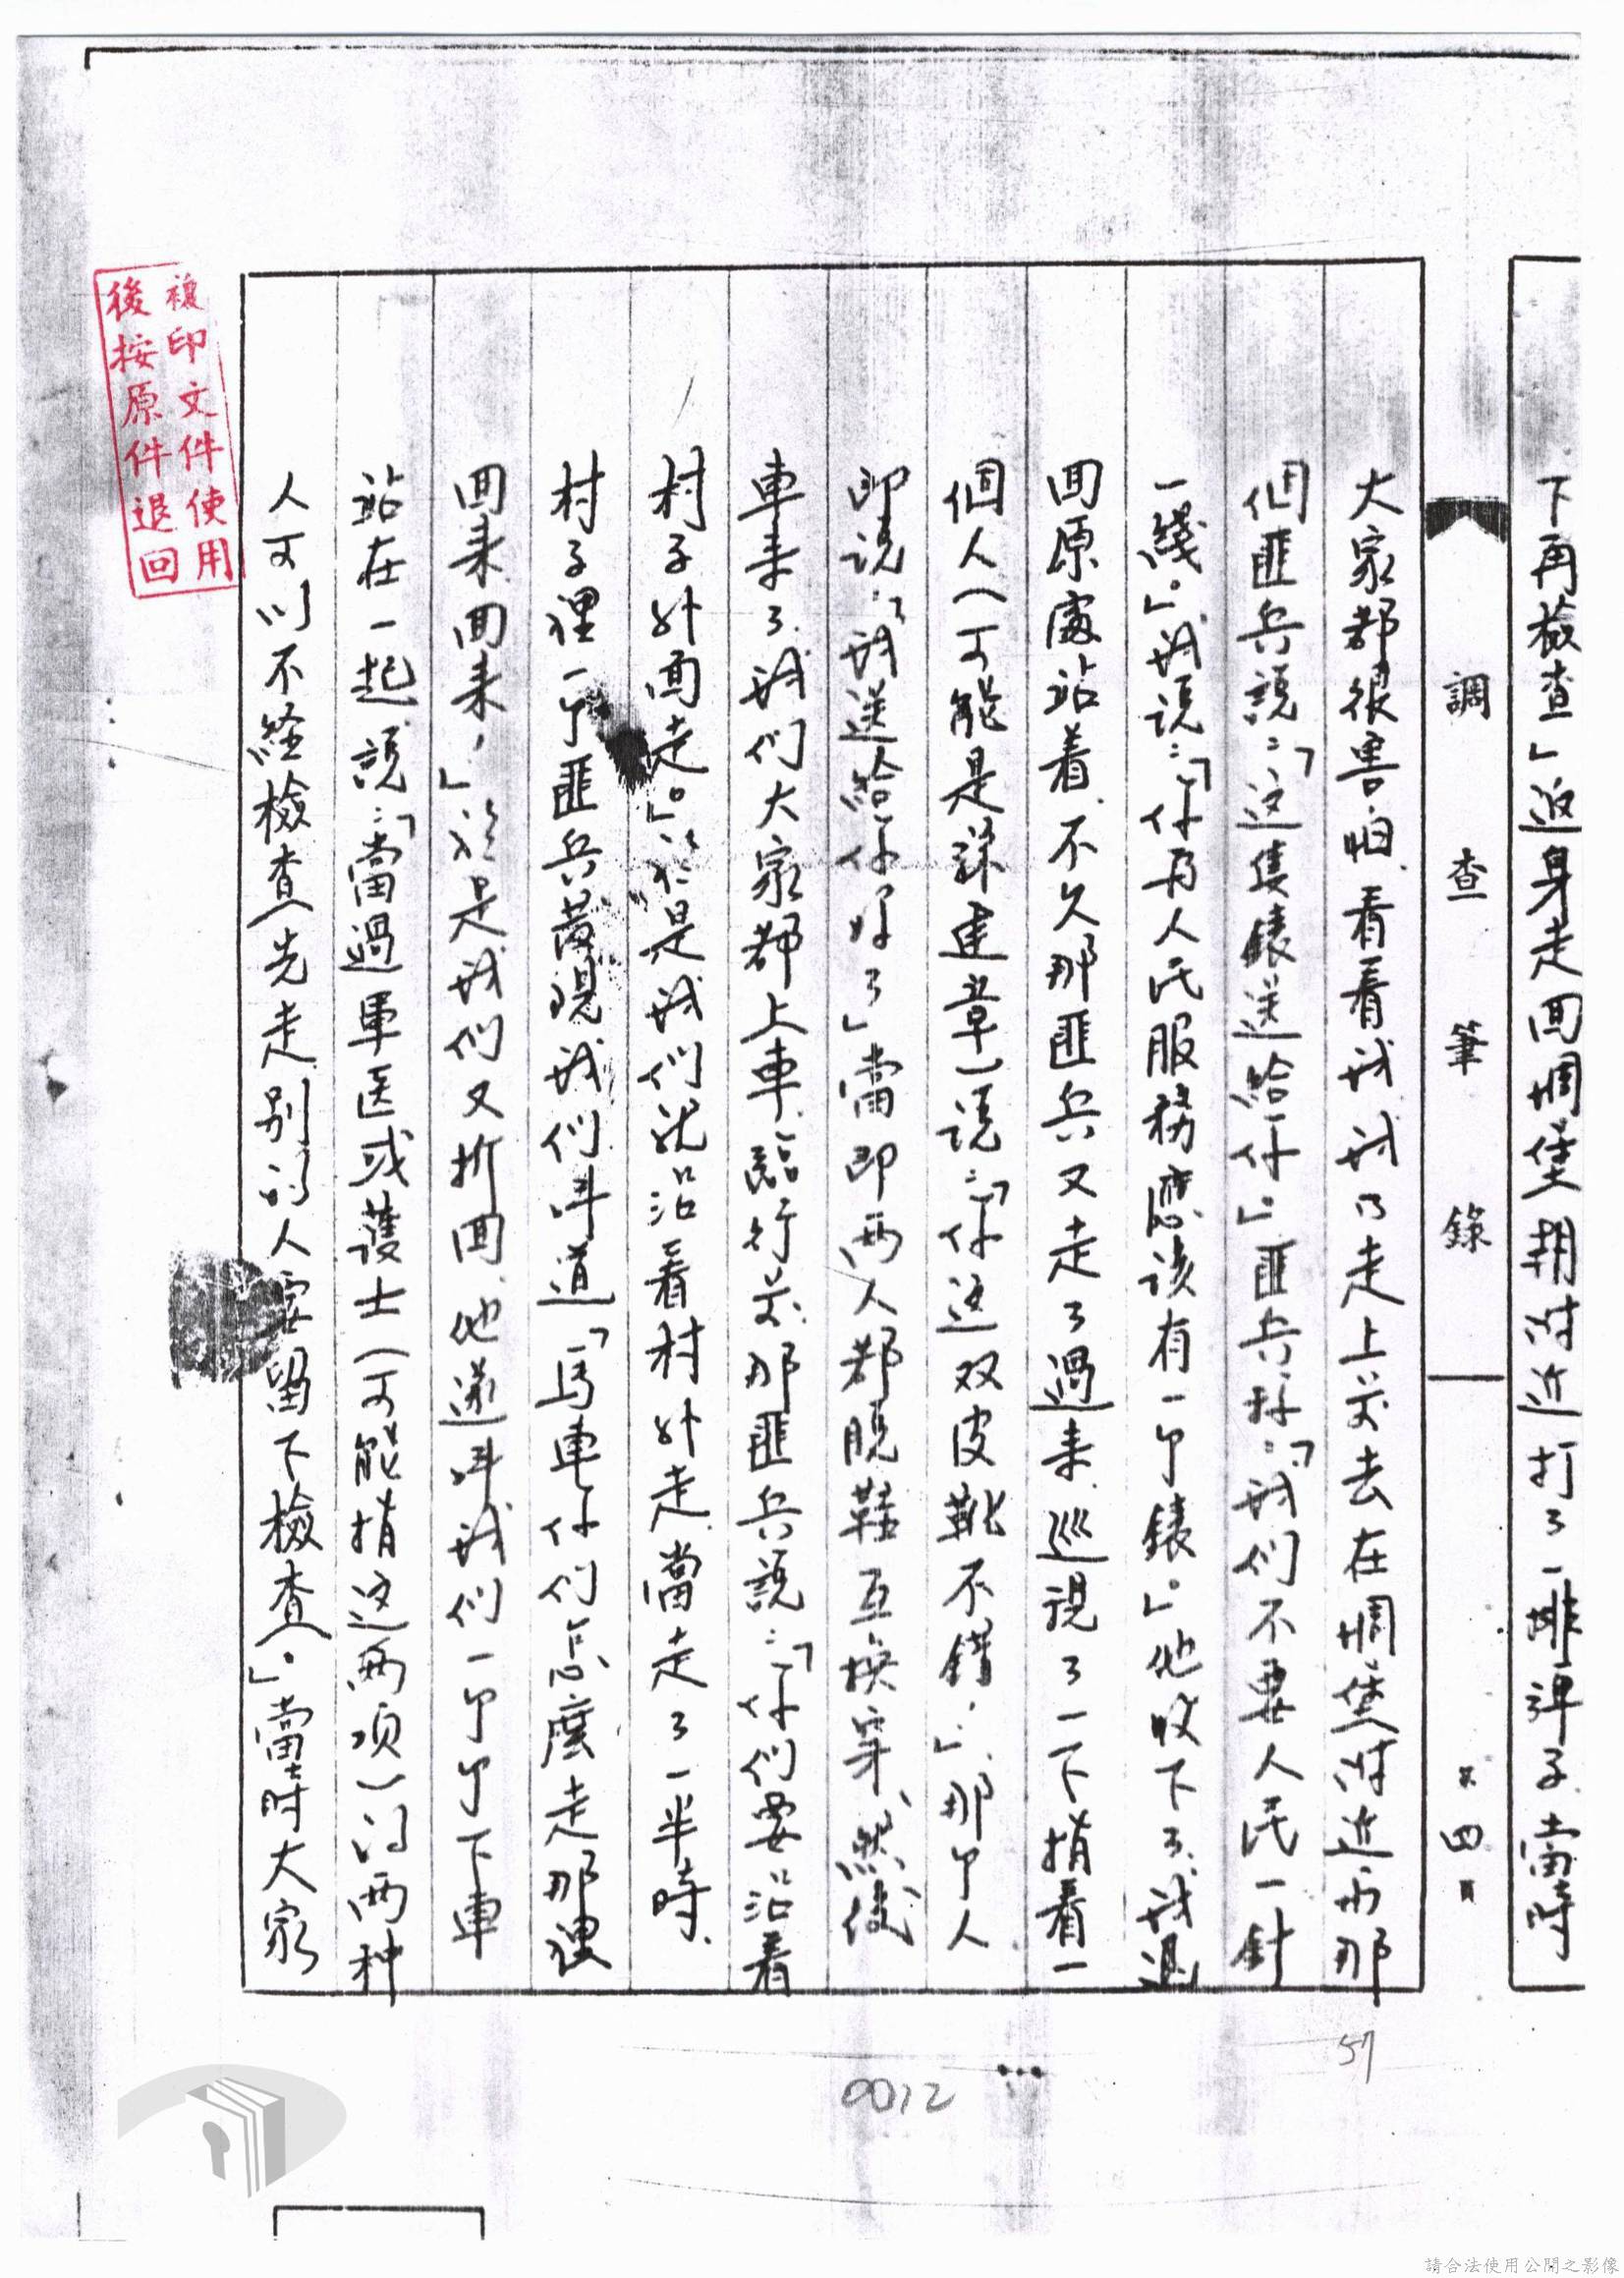 下再檢查」返身走回堋堡朝附近打了一排彈子.當時
調查筆錄
第四頁
大家都很害怕.看看我.我乃走上前去在堋堡附近向那
個匪兵說:「这隻錶送给你」。匪兵称:「我们不要人民一針
一綫。」我说:「你为人民服務應该有一个錶。」他收下了.我退
回原處站着.不久那匪兵又走了過来.巡視了一下.指着一
個人(可能是孫建章)说:「你这双皮靴不錯,」.那个人
即说:「我送给你好了」當即两人都脱鞋互换穿、然後
車来了.我们大家都上車.臨行前.那匪兵說:「你们要沿着
村子外面走。」於是我们就沿着村外走.當走了一半時.
村子裡一个匪兵發現我们叫道「馬車你们怎麼走那裡
回来.回来,」於是我们又折回.他遂叫我们一个个下車
站在一起.說:「當過軍医或護士(可能指这两项)的两种
人可以不経檢查先走.别的人要留下檢查。」當時大家
複印文件使用
後按原件退回
57
0012
請合法使用公開之影像